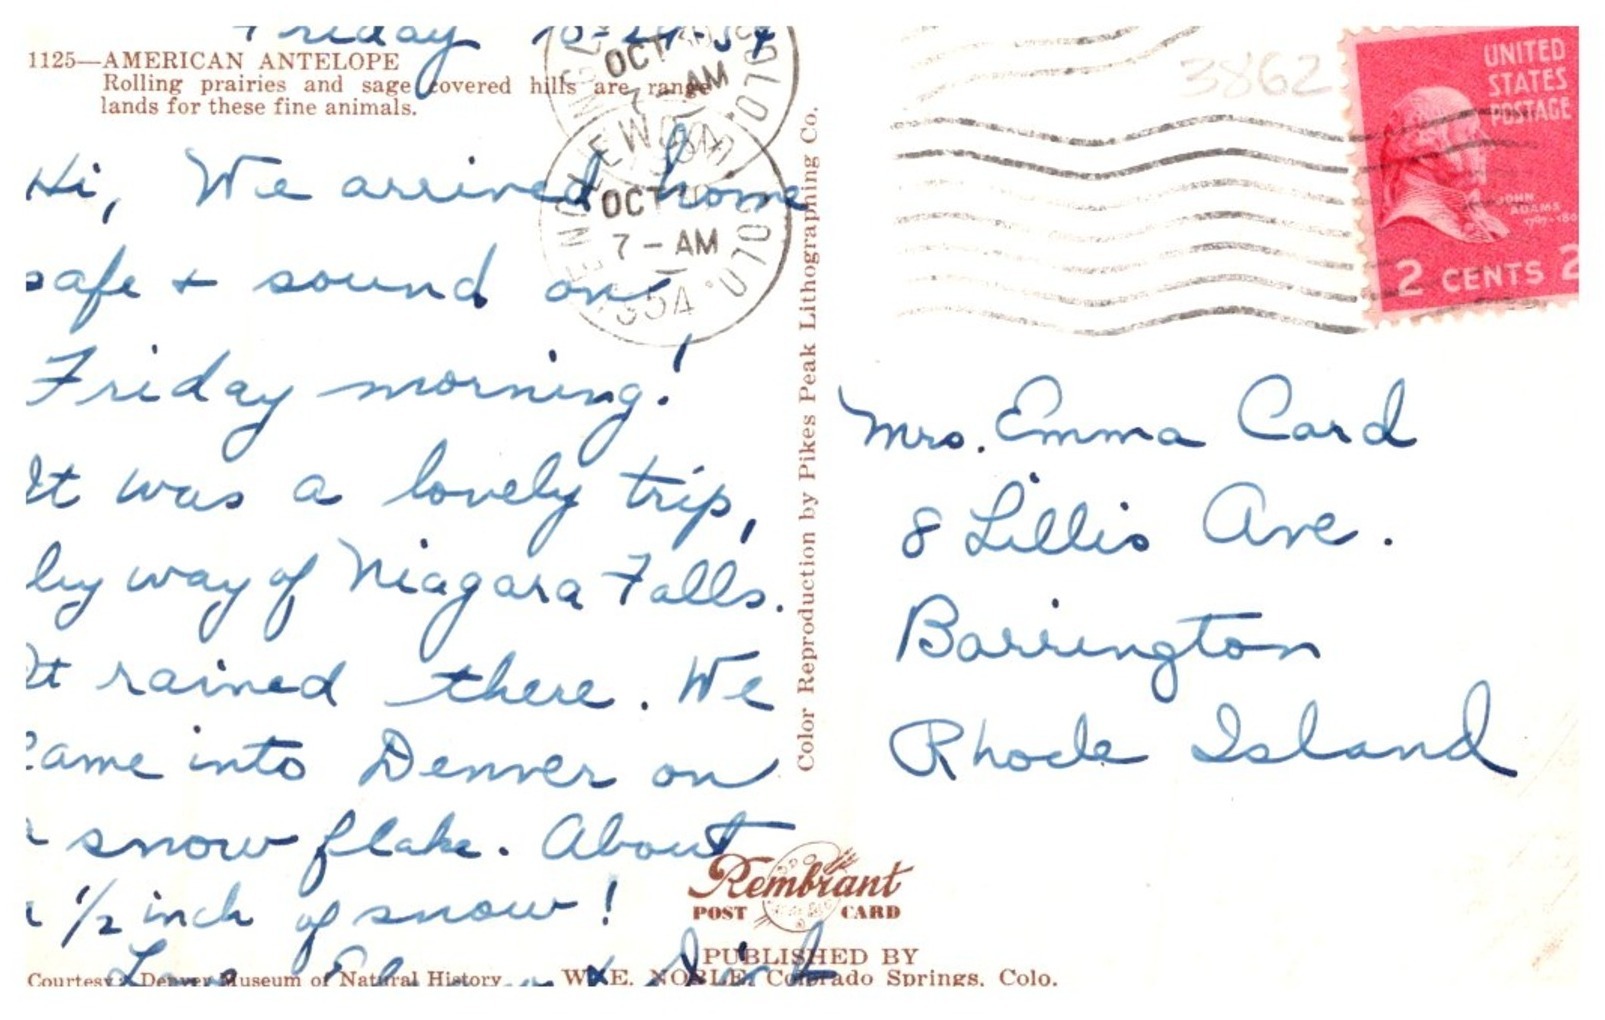 Friday
1125—AMERICAN ANTELOPE
Rolling prairies and sage covered hills are range
lands for these fine animals.
Hi, We arrived home
safe + sound on
Friday morning!
It was a lovely trip,
by way of Niagara Falls.
It rained there. We
came into Denver on
a snow flake. About
a 1/2 inch of snow!
Love
Courtesy Denver Museum of Natural History
Color Reproduction by Pikes Peak Lithographing Co.
OCT
7-AM
ENGLEWOOD COLO.
OCT
7-AM
1954
3862
UNITED
STATES
POSTAGE
JOHN
ADAMS
2 CENTS 2
Mrs. Emma Card
8 Lillis Ave.
Barrington
Rhode Island
Rembrant
POST CARD
PUBLISHED BY
W. E. NOBLE, Colorado Springs, Colo.